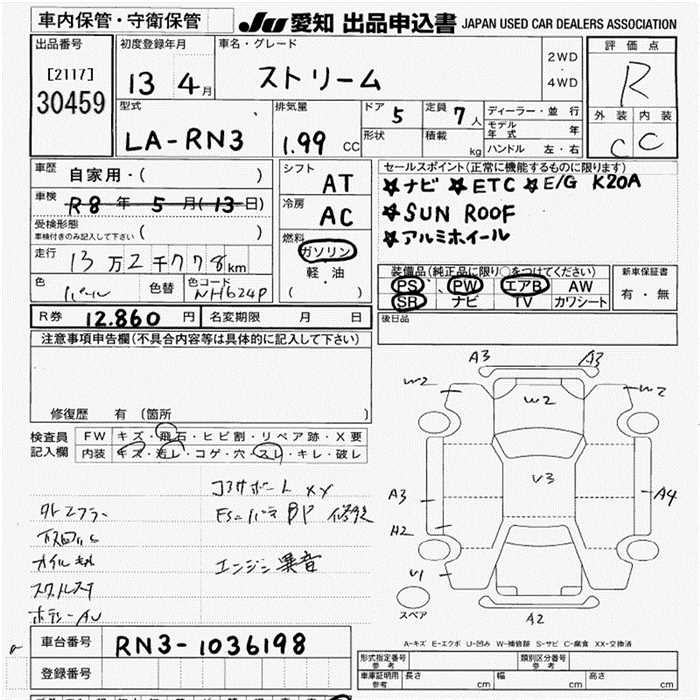 車内保管・守衛保管
JU 愛知 出品申込書 JAPAN USED CAR DEALERS ASSOCIATION
出品番号
[2117]
30459
初度登録年月
13 4月
車名・グレード
ストリーム
2WD
4WD
評価点
R
外装 内装
C C
型式
LA-RN3
排気量
1.99 CC
ドア 5
形状
定員 7人
積載 kg
ディーラー・並行
モデル年式 年
ハンドル 左・右
車歴 自家用・( )
車検 R8年 5月(13日)
受検形態
車検付きのみ記入して下さい ( )
走行 13万2千778km
色 パール 色替 色コード NH624P
シフト AT
冷房 AC
燃料
ガソリン
軽・油
( )
セールスポイント(正常に機能するものに限ります)
★ナビ ★ETC ★E/G K20A
★SUN ROOF
★アルミホイール
装備品(純正品に限り○をつけてください)
PS PW エアB AW
SR ナビ TV カワシート
新車保証書
有・無
後日品
R券 12.860円 名変期限 月 日
注意事項申告欄(不具合内容等は具体的に記入して下さい)
修復歴 有(箇所 )
検査員記入欄
FW キズ・飛石・ヒビ割・リペア跡・X要
内装 キズ・汚レ・コゲ・穴・スレ・キレ・破レ
コアサポート XX
BP 修理
エンジン異音
A3 A3
W2 W2 W2
V3
A3 A4
A2
V1
A2
スペア
A-キズ E-エクボ U-凹み W-補修跡 S-サビ C-腐食 XX-交換済
車台番号 RN3-1036198
登録番号
形式指定番号 参考
類別区分番号 参考
車庫証明用 参考 長さ cm 幅 cm 高さ cm